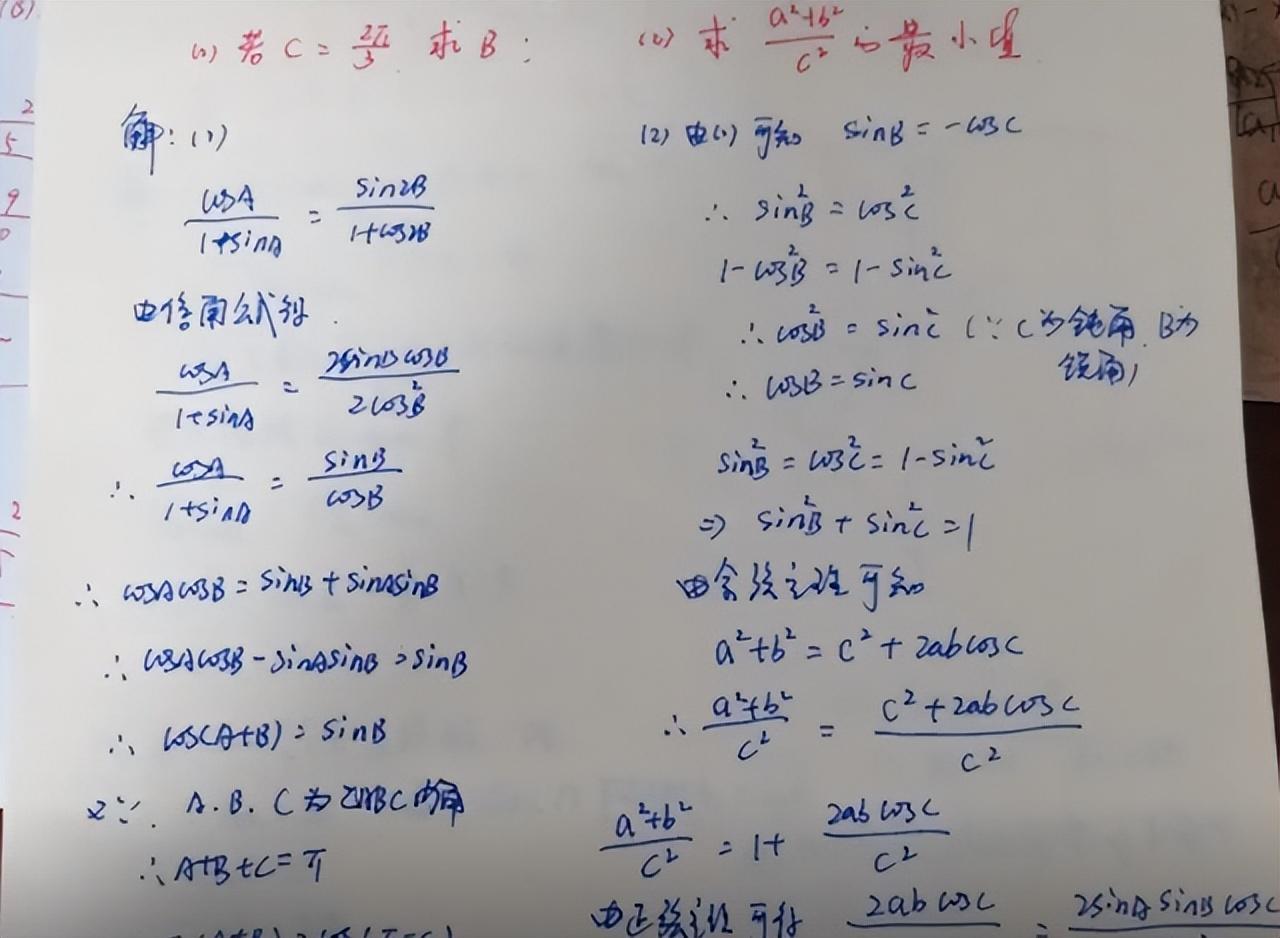 (1) 若 C = 2π/3 求 B;
(2) 求 (a²+b²)/c² 的最小值
解:(1)
cosA/(1+sinA) = sin2B/(1+cos2B)
由倍角公式得
cosA/(1+sinA) = 2sinBcosB/2cos²B
∴ cosA/(1+sinA) = sinB/cosB
∴ cosAcosB = sinB + sinAsinB
∴ cosAcosB - sinAsinB = sinB
∴ cos(A+B) = sinB
又∵ A.B.C为△ABC内角
∴ A+B+C = π
(2) 由(1)可知 sinB = -cosC
∴ sin²B = cos²C
1-cos²B = 1-sin²C
∴ cos²B = sin²C (∵ C为钝角.B为
锐角)
∴ cosB = sinC
sin²B = cos²C = 1-sin²C
⇒ sin²B + sin²C = 1
由余弦定理可知
a²+b² = c² + 2abcosC
∴ (a²+b²)/c² = (c²+2abcosC)/c²
(a²+b²)/c² = 1+ 2abcosC/c²
由正弦定理可得 2abcosC = 2sinAsinBcosC